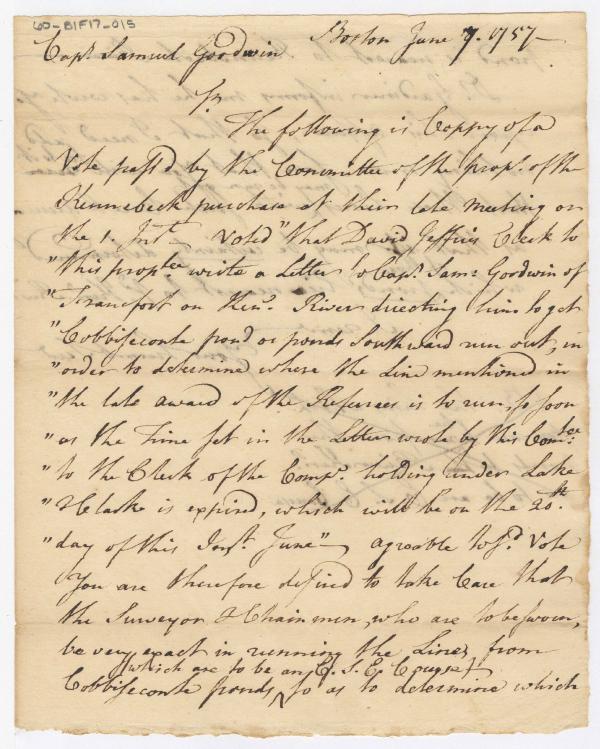 60-B1F17-015
Boston June 7. 1757-
Capt Samuel Goodwin
Sr.
The following is Coppy of a
Vote pass'd by the Committee of the propr. of the
Kennebeck purchase at their late meeting on
the 1. Inst - Voted "that David Jeffries Clerk to
"this proptee wrote a Letter to Capt. Sam: Goodwin of
"Francfort on Ken: River directing him to get
"Cobbiseconte pond or ponds Southward run out, in
"order to determine where the Line mentioned in
"the late award of the Referees is to run, so soon
"as the Time set in the Letter wrote by this Comtee:
"to the Clerk of the Compy. holding under Lake
"& Clarke is expired, which will be on the 20th.
"day of this Inst. June" - agreable to sd. Vote
You are therefore desired to take Care that
the Surveyor & Chainmen, who are to be sworn,
be very exact in running the Lines from
which are to be an E. S. E. Course
Cobbiseconte ponds, so as to determine which